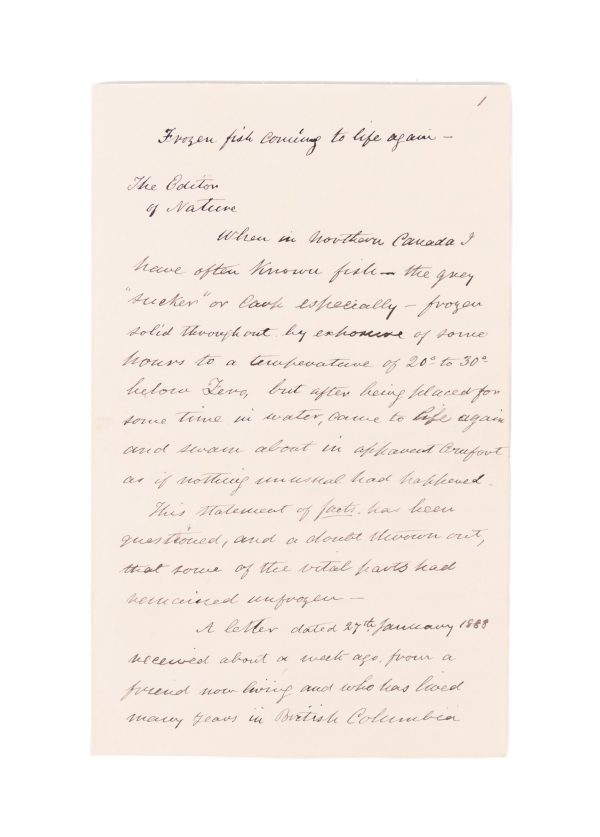 1
Frozen fish coming to life again —
The Editor
of Nature
When in Northern Canada I
have often known fish — the grey
"sucker" or Carp especially — frozen
solid throughout by exposure of some
hours to a temperature of 20° to 30°
below Zero, but after being placed for
some time in water, came to life again
and swam about in apparent comfort
as if nothing unusual had happened.
This statement of facts has been
questioned, and a doubt thrown out,
that some of the vital parts had
remained unfrozen —
A letter dated 27th January 1888
received about a week ago from a
friend now living and who has lived
many years in British Columbia